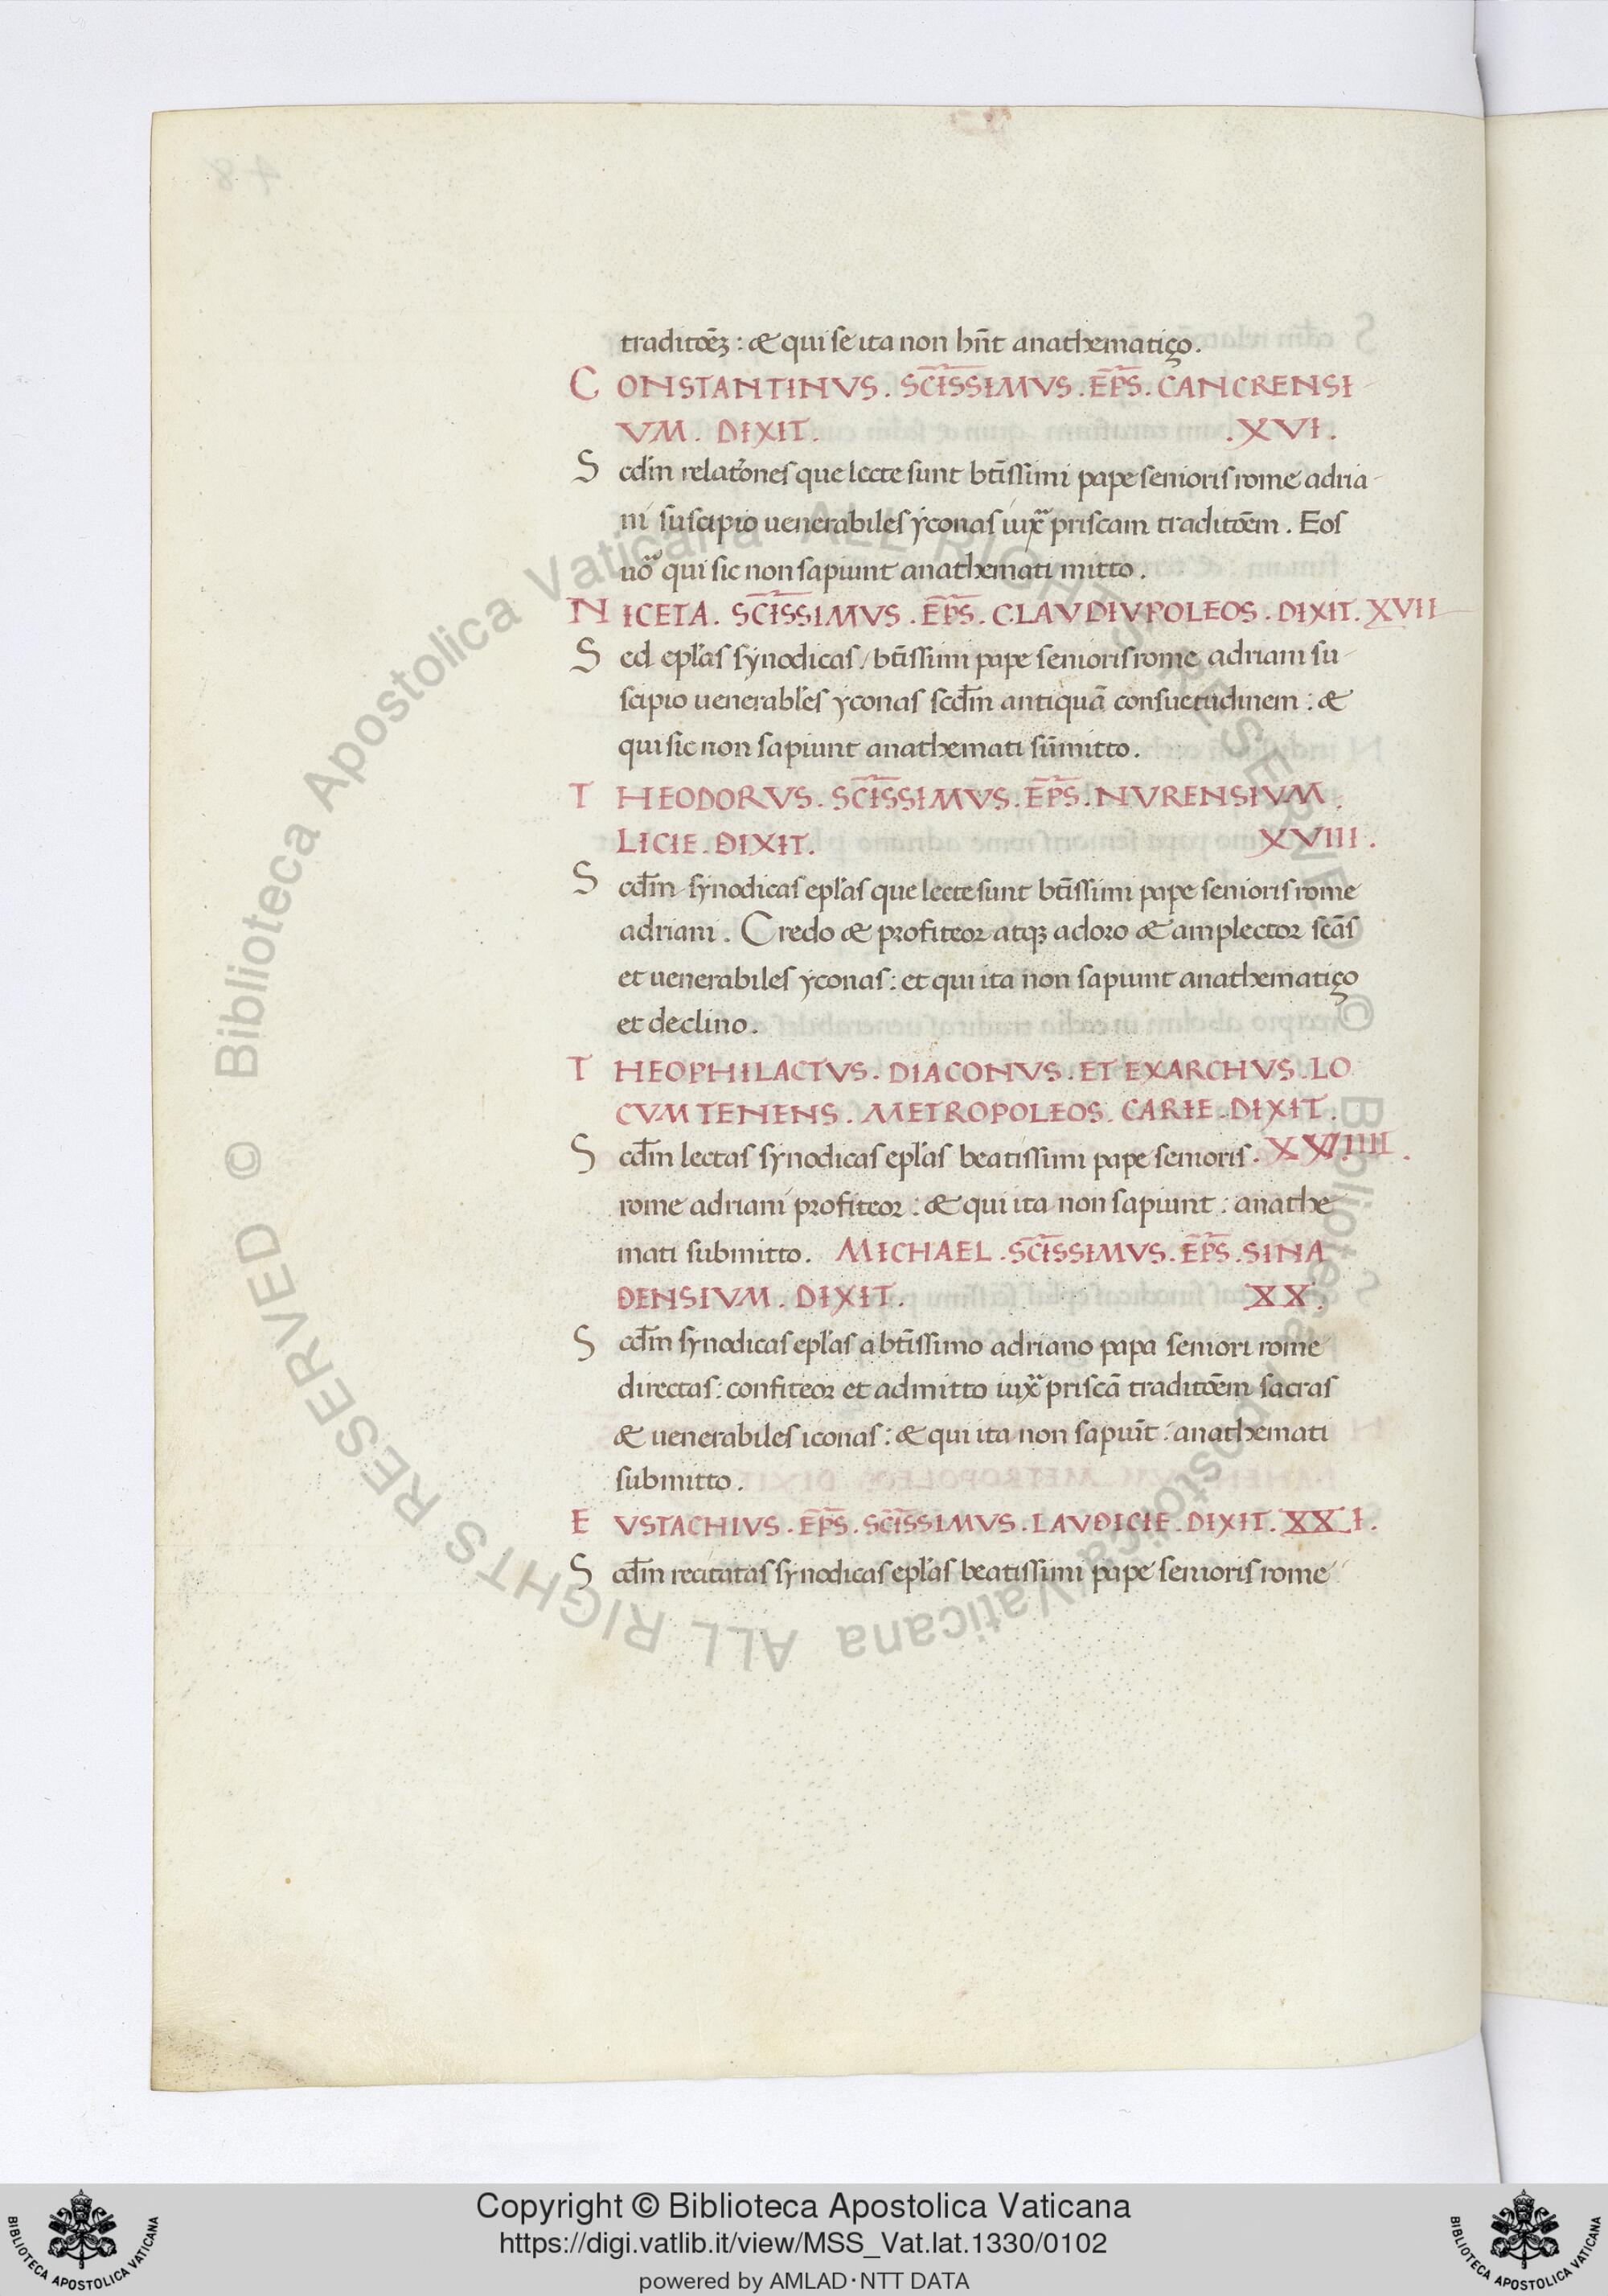 traditōeꝫ : & qui se ita non hn̄t anathematiço.
CONSTANTINVS . SC̄ISSIMVS . EP̄S . CANCRENSI
VM . DIXIT . . XVI .
Scd̄m relatōnes que lecte sunt bt̄issimi pape senioris rome adria-
ni suscipio uenerabiles ẏconas iuxᵃ priscam traditōem . Eos
uō qui sic non sapiunt anathemati mitto .
NICETA . SC̄ISSIMVS . EP̄S . CLAVDIVPOLEOS . DIXIT . XVII
Sed epl̄as sẏnodicas / bt̄issimi pape senioris rome adriani su-
scipio uenerabl̄es ẏconas scd̄m antiquā consuetudinem : &
qui sic non sapiunt anathemati sūmitto .
THEODORVS . SC̄ISSIMVS . EP̄S . NVRENSIVM .
LICIE . DIXIT . XVIII .
Scd̄m sẏnodicas epl̄as que lecte sunt bt̄issimi pape senioris rome
adriani . Credo & profiteor atqꝫ adoro & amplector scās
et uenerabiles ẏconas : et qui ita non sapiunt anathematiço
et declino .
THEOPHILACTVS . DIACONVS . ET EXARCHVS . LO
CVM TENENS . METROPOLEOS . CARIE . DIXIT .
Scd̄m lectas sẏnodicas epl̄as beatissimi pape senioris . XVIIII .
rome adriani profiteor : & qui ita non sapiunt : anathe
mati submitto . MICHAEL . SC̄ISSIMVS . EP̄S . SINA
DENSIVM . DIXIT . XX .
Scd̄m sẏnodicas epl̄as a bt̄issimo adriano papa seniori rome
directas : confiteor et admitto iuxᵃ priscā traditōem sacras
& uenerabiles iconas : & qui ita non sapiūt : anathemati
submitto .
EVSTACHIVS . EP̄S . SC̄ISSIMVS . LAVDICIE . DIXIT . XXI .
Scd̄m recitatas sẏnodicas epl̄as beatissimi pape senioris rome
Copyright © Biblioteca Apostolica Vaticana
https://digi.vatlib.it/view/MSS_Vat.lat.1330/0102
powered by AMLAD·NTT DATA
© Biblioteca Apostolica Vaticana ALL RIGHTS RESERVED © Biblioteca Apostolica Vaticana ALL RIGHTS RESERVED
BIBLIOTECA APOSTOLICA VATICANA
BIBLIOTECA APOSTOLICA VATICANA